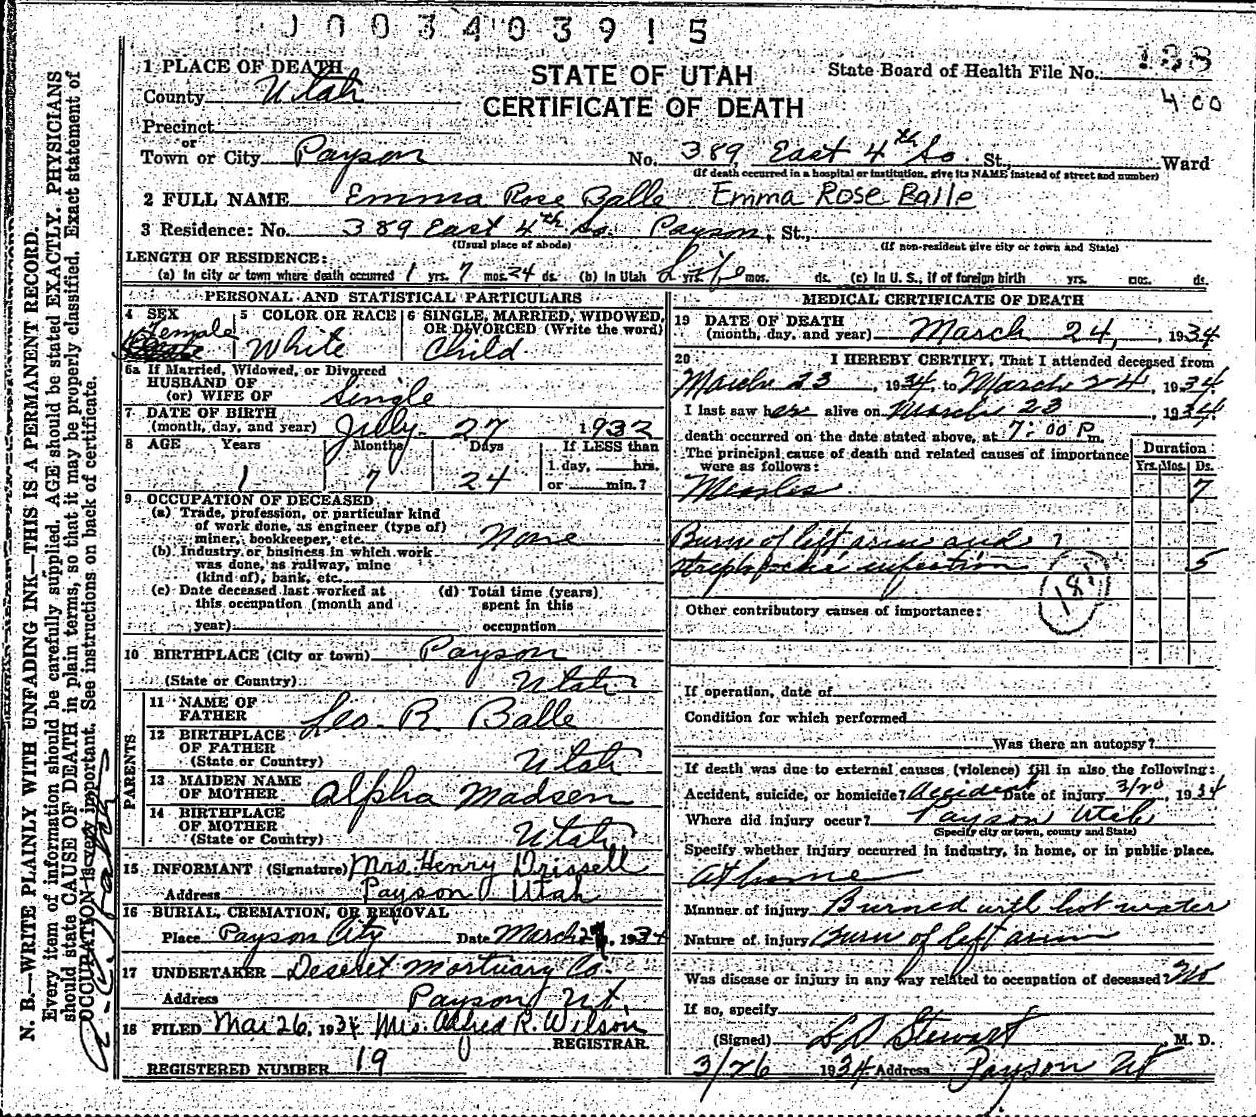 J 0 0 3 4 0 3 9 1 5
1 PLACE OF DEATH
STATE OF UTAH
CERTIFICATE OF DEATH
State Board of Health File No. 138
400
County Utah
Precinct
or
Town or City Payson No. 389 East 4th So. St., Ward
(If death occurred in a hospital or institution, give its NAME instead of street and number)
2 FULL NAME Emma Rose Balle Emma Rose Balle
3 Residence: No. 389 East 4th So. Payson, St.,
(Usual place of abode) (If non-resident give city or town and State)
LENGTH OF RESIDENCE:
(a) In city or town where death occurred 1 yrs. 7 mos. 24 ds. (b) In Utah Life yrs. mos. ds. (c) In U. S., if of foreign birth yrs. mos. ds.
PERSONAL AND STATISTICAL PARTICULARS
4 SEX Female
5 COLOR OR RACE White
6 SINGLE, MARRIED, WIDOWED, OR DIVORCED (Write the word) Child
6a If Married, Widowed, or Divorced
HUSBAND OF
(or) WIFE OF Single
7 DATE OF BIRTH
(month, day, and year) July 27 1932
8 AGE Years Months Days If LESS than
1 7 24 1 day, hrs.
or min.?
9 OCCUPATION OF DECEASED
(a) Trade, profession, or particular kind
of work done, as engineer (type of)
miner, bookkeeper, etc. None
(b) Industry or business in which work
was done, as railway, mine
(kind of), bank, etc.
(c) Date deceased last worked at
this occupation (month and
year)
(d) Total time (years)
spent in this
occupation
10 BIRTHPLACE (City or town) Payson
(State or Country) Utah
PARENTS
11 NAME OF
FATHER Leo R Balle
12 BIRTHPLACE
OF FATHER
(State or Country) Utah
13 MAIDEN NAME
OF MOTHER Alpha Madsen
14 BIRTHPLACE
OF MOTHER
(State or Country) Utah
15 INFORMANT (Signature) Mrs. Henry Drissell
Address Payson Utah
16 BURIAL, CREMATION, OR REMOVAL
Place Payson City Date March 27, 1934
17 UNDERTAKER Deseret Mortuary Co.
Address Payson Ut.
18 FILED Mar 26, 1934 Mrs. Alfred R. Wilson
REGISTRAR.
REGISTERED NUMBER 19
MEDICAL CERTIFICATE OF DEATH
19 DATE OF DEATH
(month, day, and year) March 24, 1934
20 I HEREBY CERTIFY, That I attended deceased from
March 23, 1934, to March 24, 1934
I last saw her alive on March 23, 1934
death occurred on the date stated above, at 7:00 P m.
The principal cause of death and related causes of importance
were as follows:
Duration
Yrs. Mos. Ds.
Measles 7
Burn of left arm and ?
streptococcic infection 5
181
Other contributory causes of importance:
If operation, date of
Condition for which performed
Was there an autopsy?
If death was due to external causes (violence) fill in also the following:
Accident, suicide, or homicide? Accident Date of injury 3/20, 1934
Where did injury occur? Payson Utah
(Specify city or town, county and State)
Specify whether injury occurred in industry, in home, or in public place.
At home
Manner of injury Burned with hot water
Nature of injury Burn of left arm
Was disease or injury in any way related to occupation of deceased? No
If so, specify
(Signed) L D Stewart, M. D.
3/26 1934 Address Payson Ut
N. B.—WRITE PLAINLY WITH UNFADING INK—THIS IS A PERMANENT RECORD.
Every item of information should be carefully supplied. AGE should be stated EXACTLY. PHYSICIANS
should state CAUSE OF DEATH in plain terms, so that it may be properly classified. Exact statement of
OCCUPATION is very important. See instructions on back of certificate.